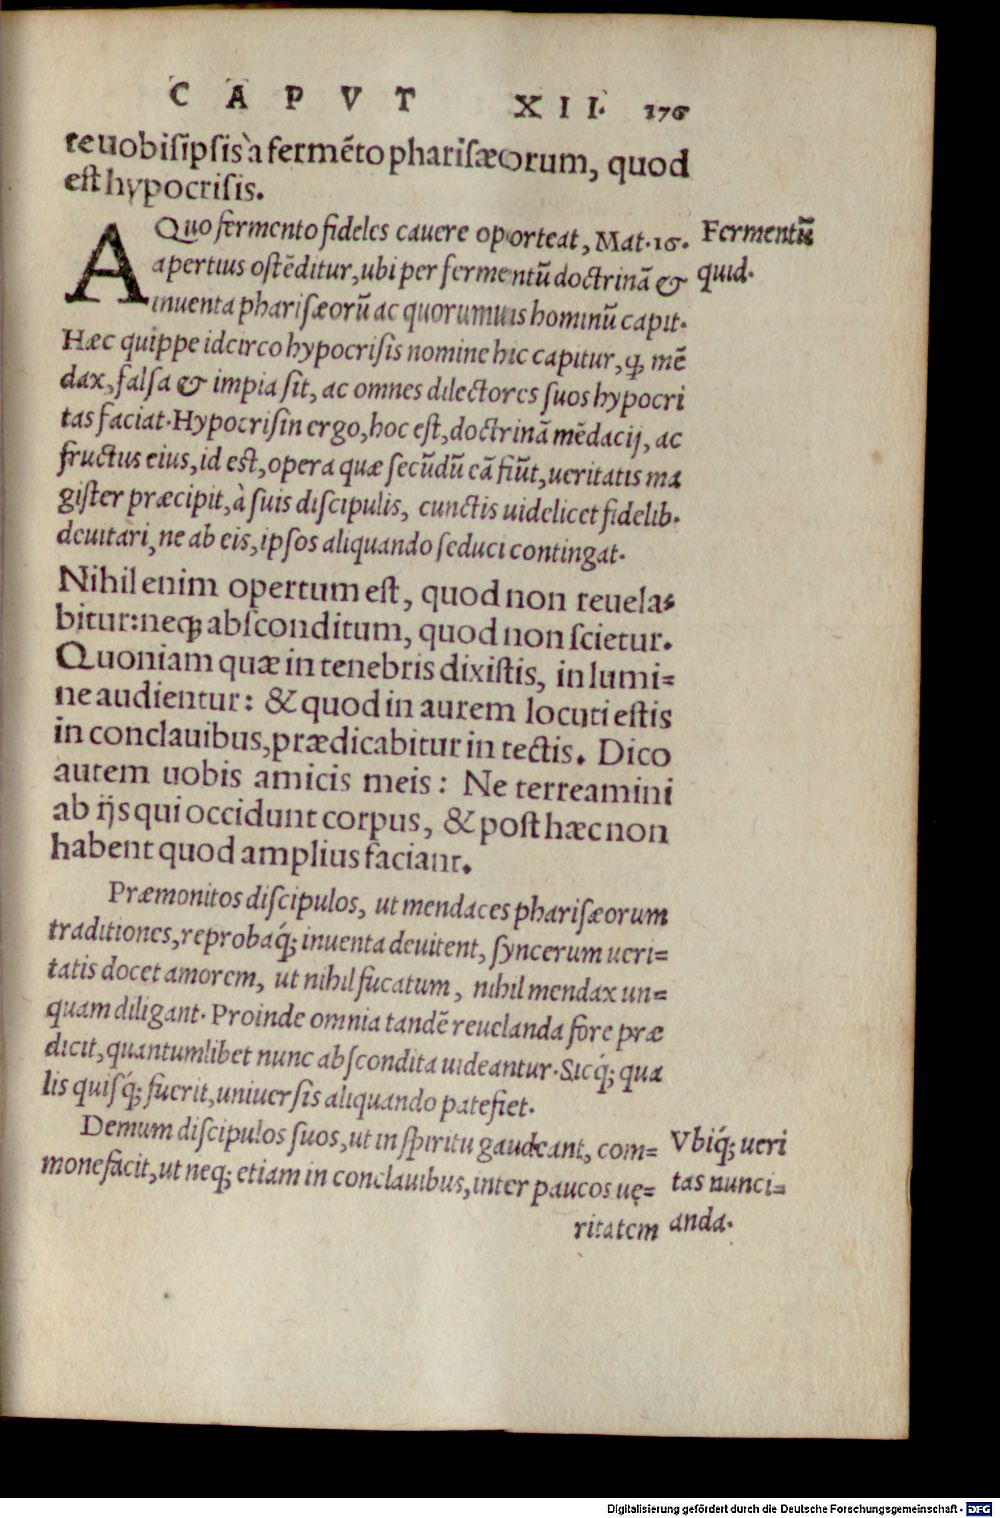 CAPVT XII. 176
te uobisĩpsis à fermẽto pharisæorum, quod
est hypocrisis.
A Quo fermento fideles cauere oporteat, Mat.16.
Fermentũ
apertius ostẽditur, ubi per fermentũ doctrinã &
quid.
inuenta pharisæorũ ac quorumuis hominũ capit.
Hæc quippe idcirco hypocrisis nomine hic capitur, ꝙ mẽ
dax, falsa & impia sit, ac omnes dilectores suos hypocri
tas faciat. Hypocrisin ergo, hoc est, doctrinã mẽdacij, ac
fructus eius, id est, opera quæ secũdũ eã fiũt, ueritatis ma
gister præcipit, à suis discipulis, cunctis uidelicet fidelib.
deuitari, ne ab eis, ipsos aliquando seduci contingat.
Nihil enim opertum est, quod non reuela-
bitur: neqꝫ absconditum, quod non scietur.
Quoniam quæ in tenebris dixistis, in lumi-
ne audientur: & quod in aurem locuti estis
in conclauibus, prædicabitur in tectis. Dico
autem uobis amicis meis: Ne terreamini
ab ijs qui occidunt corpus, & post hæc non
habent quod amplius faciant.
Præmonitos discipulos, ut mendaces pharisæorum
traditiones, reprobaq́ꝫ inuenta deuitent, syncerum ueri-
tatis docet amorem, ut nihil fucatum, nihil mendax un-
quam diligant. Proinde omnia tandẽ reuelanda fore præ
dicit, quantumlibet nunc abscondita uideantur. Sicq́ꝫ qua
lis quisq́ꝫ fuerit, uniuersis aliquando patefiet.
Demum discipulos suos, ut in spiritu gaudeant, com-
Vbiq́ꝫ ueri
monefacit, ut neqꝫ etiam in conclauibus, inter paucos uę-
tas nunci-
ritatem
anda.
Digitalisierung gefördert durch die Deutsche Forschungsgemeinschaft - DFG